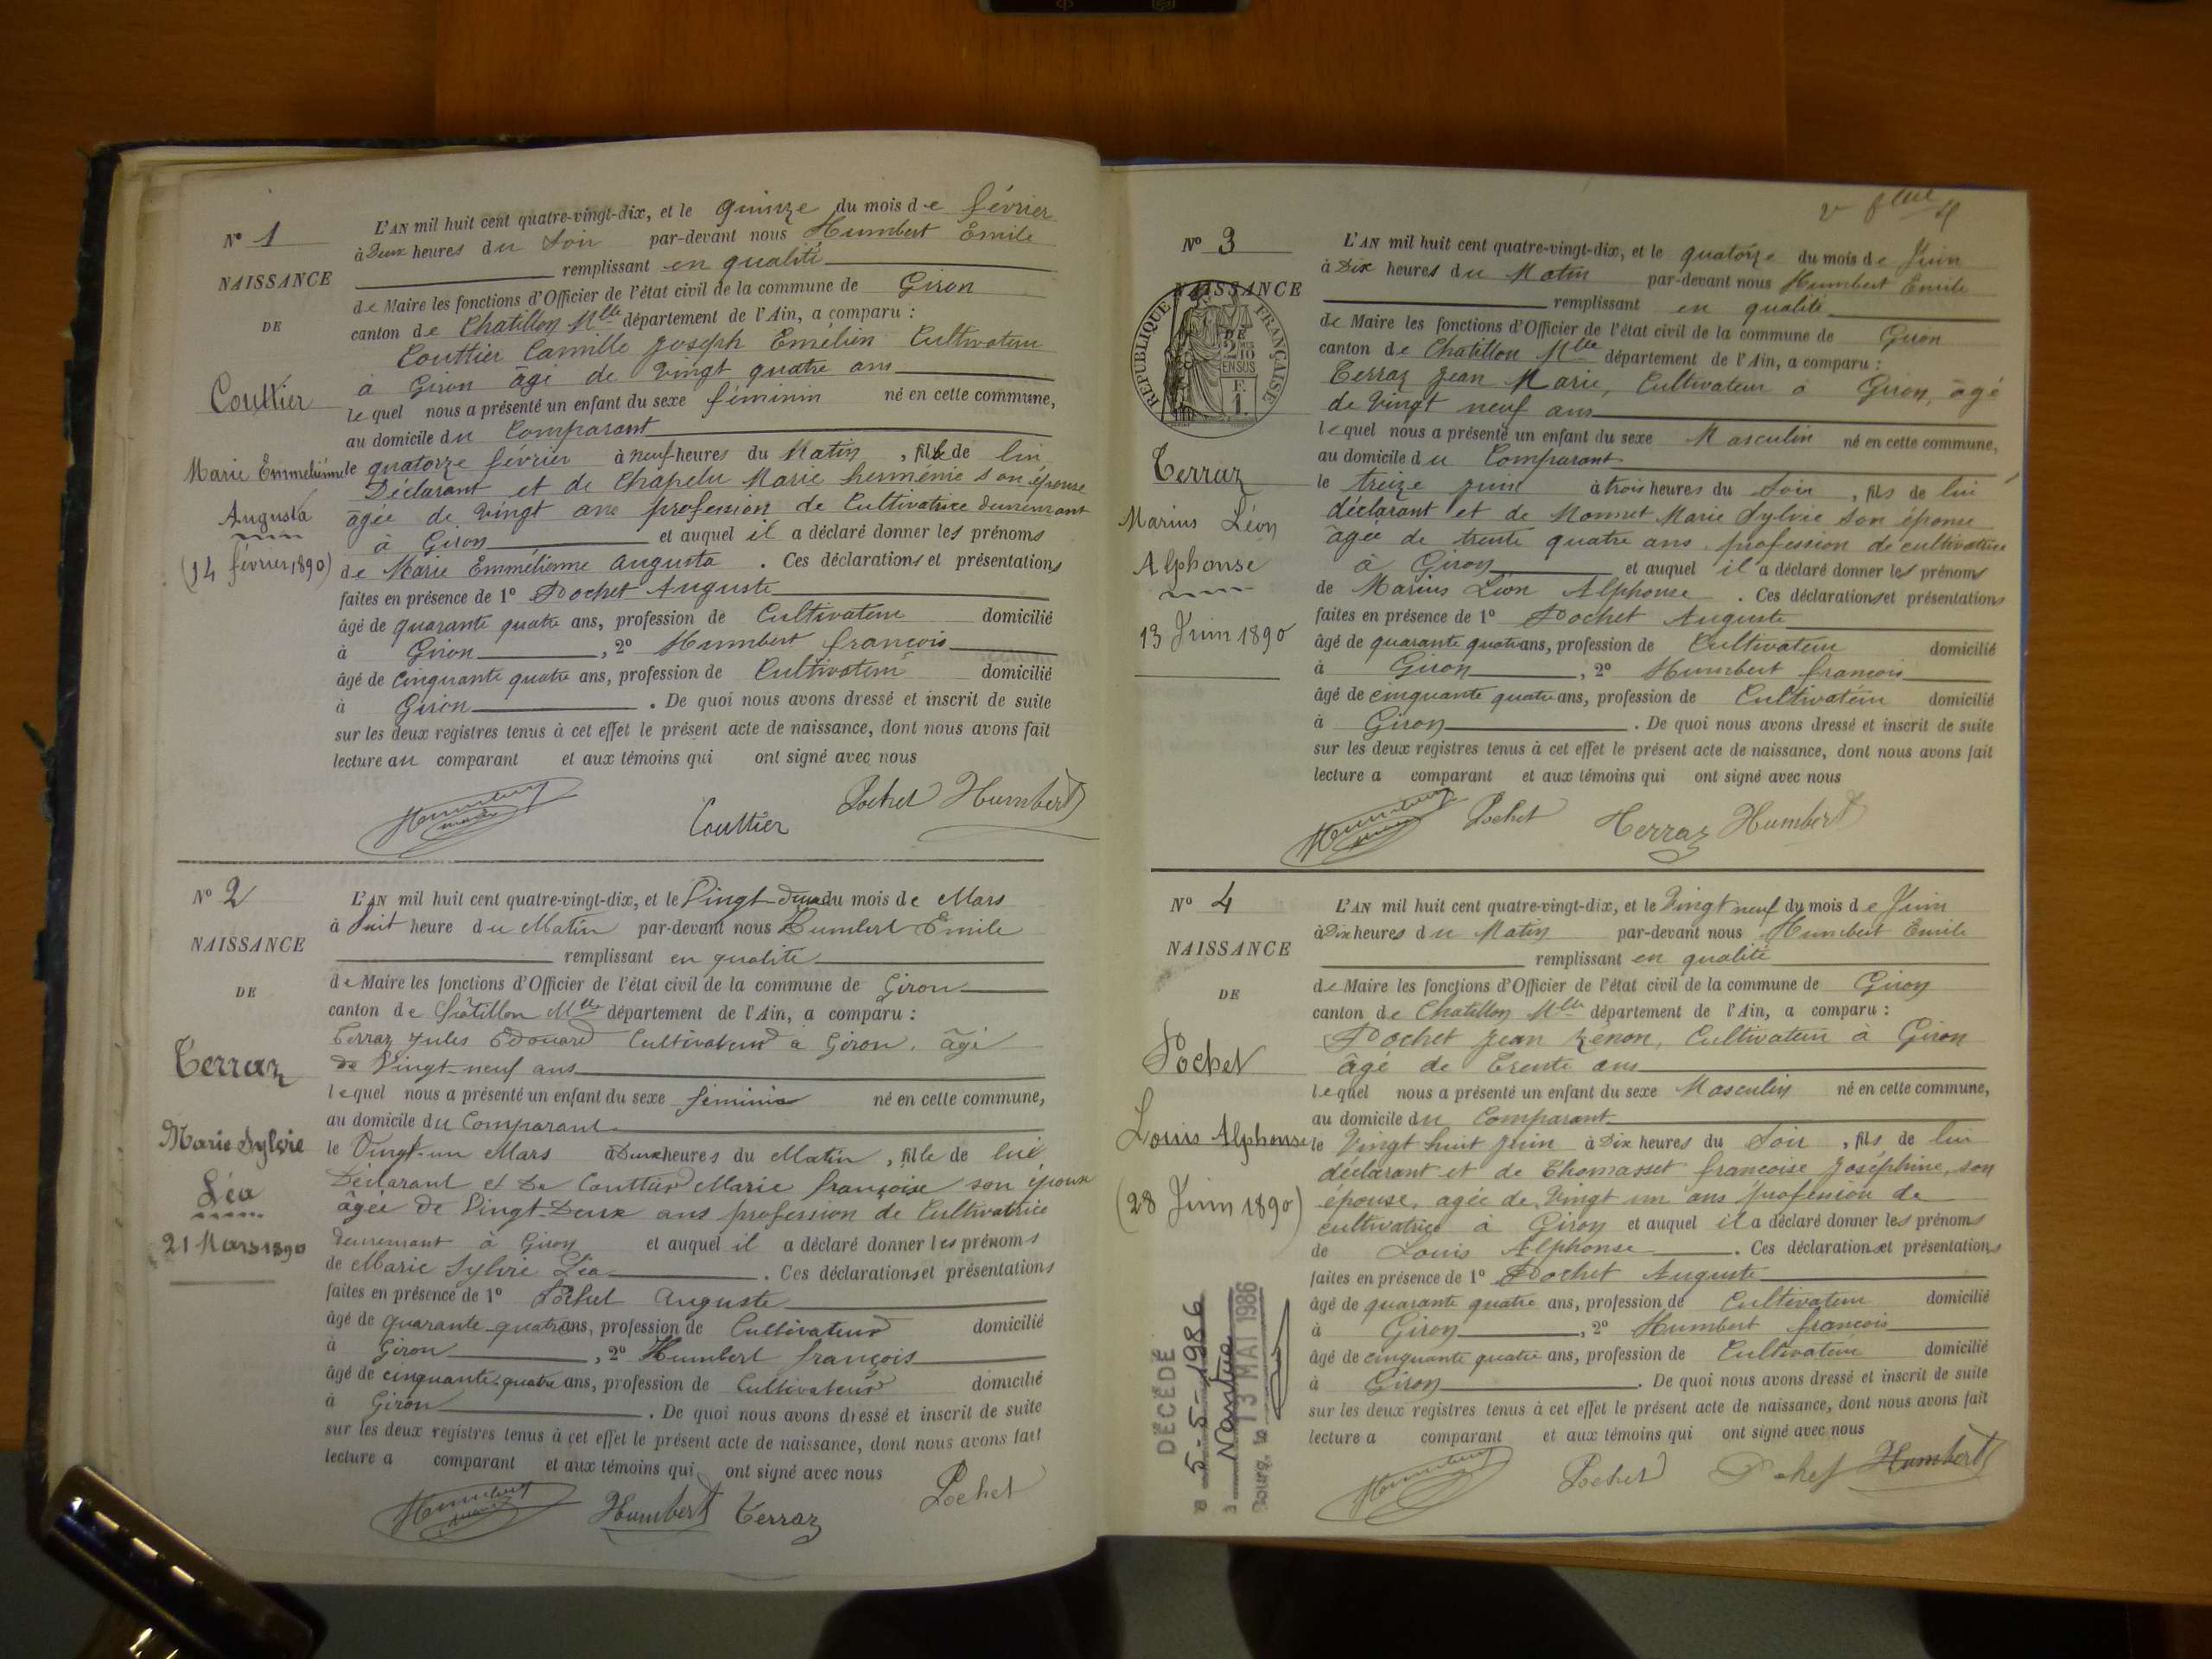 N° 1
NAISSANCE
DE
Couttier
Marie Emmelienne
Augusta
(14 février 1890)
L'AN mil huit cent quatre-vingt-dix, et le quinze du mois de février
à Deux heures du Soir par-devant nous Humbert Emile
remplissant en qualité
de Maire les fonctions d'Officier de l'état civil de la commune de Giron
canton de Chatillon Mlle département de l'Ain, a comparu :
Couttier Camille Joseph Emélien Cultivateur
à Giron âgé de vingt quatre ans
lequel nous a présenté un enfant du sexe féminin né en cette commune,
au domicile du Comparant
le quatorze février à neuf heures du Matin, fille de lui
Déclarant et de Chapelu Marie herménie son épouse
âgée de vingt ans profession de Cultivatrice demeurant
à Giron et auquel il a déclaré donner les prénoms
de Marie Emmélienne Augusta. Ces déclarations et présentations
faites en présence de 1° Pochet Auguste
âgé de quarante quatre ans, profession de Cultivateur domicilié
à Giron, 2° Humbert françois
âgé de cinquante quatre ans, profession de Cultivateur domicilié
à Giron. De quoi nous avons dressé et inscrit de suite
sur les deux registres tenus à cet effet le présent acte de naissance, dont nous avons fait
lecture au comparant et aux témoins qui ont signé avec nous
Humbert maire Couttier Pochet Humbert
N° 2
NAISSANCE
DE
Terraz
Marie Sylvie
Léa
21 Mars 1890
L'AN mil huit cent quatre-vingt-dix, et le Vingt-deux du mois de Mars
à huit heure du Matin par-devant nous Humbert Emile
remplissant en qualité
de Maire les fonctions d'Officier de l'état civil de la commune de Giron
canton de Châtillon Mlle département de l'Ain, a comparu :
Terraz Jules Edouard Cultivateur à Giron, âgé
de Vingt-neuf ans
lequel nous a présenté un enfant du sexe féminin né en cette commune,
au domicile du Comparant
le Vingt-un Mars à Deux heures du Matin, fille de lui
Déclarant et de Couttier Marie françoise son épouse
âgée de Vingt-Deux ans profession de Cultivatrice
demeurant à Giron et auquel il a déclaré donner les prénoms
de Marie Sylvie Léa. Ces déclarations et présentations
faites en présence de 1° Pochet Auguste
âgé de quarante-quatre ans, profession de Cultivateur domicilié
à Giron, 2° Humbert françois
âgé de cinquante-quatre ans, profession de Cultivateur domicilié
à Giron. De quoi nous avons dressé et inscrit de suite
sur les deux registres tenus à cet effet le présent acte de naissance, dont nous avons fait
lecture a comparant et aux témoins qui ont signé avec nous
Humbert maire Humbert Terraz Pochet
N° 3
NAISSANCE
DE
RÉPUBLIQUE FRANÇAISE
2/10 EN SUS
F.
1.
Terraz
Marius Léon
Alphonse
13 Juin 1890
L'AN mil huit cent quatre-vingt-dix, et le quatorze du mois de Juin
à Dix heures du Matin par-devant nous Humbert Emile
remplissant en qualité
de Maire les fonctions d'Officier de l'état civil de la commune de Giron
canton de Chatillon Mlle département de l'Ain, a comparu :
Terraz Jean Marie, Cultivateur à Giron, âgé
de Vingt neuf ans
lequel nous a présenté un enfant du sexe Masculin né en cette commune,
au domicile du Comparant
le treize juin à trois heures du Soir, fils de lui
déclarant et de Monnet Marie Sylvie son épouse
âgée de trente quatre ans, profession de cultivatrice
à Giron et auquel il a déclaré donner les prénoms
de Marius Léon Alphonse. Ces déclarations et présentations
faites en présence de 1° Pochet Auguste
âgé de quarante quatre ans, profession de Cultivateur domicilié
à Giron, 2° Humbert françois
âgé de cinquante quatre ans, profession de Cultivateur domicilié
à Giron. De quoi nous avons dressé et inscrit de suite
sur les deux registres tenus à cet effet le présent acte de naissance, dont nous avons fait
lecture a comparant et aux témoins qui ont signé avec nous
Humbert maire Pochet Terraz Humbert
N° 4
NAISSANCE
DE
Pochet
Louis Alphonse
(28 Juin 1890)
DÉCÉDÉ
à 5-5-1986
à Nantua
Bourg, le 13 MAI 1986
L'AN mil huit cent quatre-vingt-dix, et le Vingt neuf du mois de Juin
à Dix heures du Matin par-devant nous Humbert Emile
remplissant en qualité
de Maire les fonctions d'Officier de l'état civil de la commune de Giron
canton de Chatillon Mlle département de l'Ain, a comparu :
Pochet Jean Zénon, Cultivateur à Giron
âgé de Trente ans
lequel nous a présenté un enfant du sexe Masculin né en cette commune,
au domicile du Comparant
le Vingt huit Juin à Dix heures du Soir, fils de lui
déclarant et de Thomasset françoise Joséphine, son
épouse, agée de Vingt un ans profession de
cultivatrice à Giron et auquel il a déclaré donner les prénoms
de Louis Alphonse. Ces déclarations et présentations
faites en présence de 1° Pochet Auguste
âgé de quarante quatre ans, profession de Cultivateur domicilié
à Giron, 2° Humbert françois
âgé de cinquante quatre ans, profession de Cultivateur domicilié
à Giron. De quoi nous avons dressé et inscrit de suite
sur les deux registres tenus à cet effet le présent acte de naissance, dont nous avons fait
lecture a comparant et aux témoins qui ont signé avec nous
Humbert Pochet Pochet Humbert